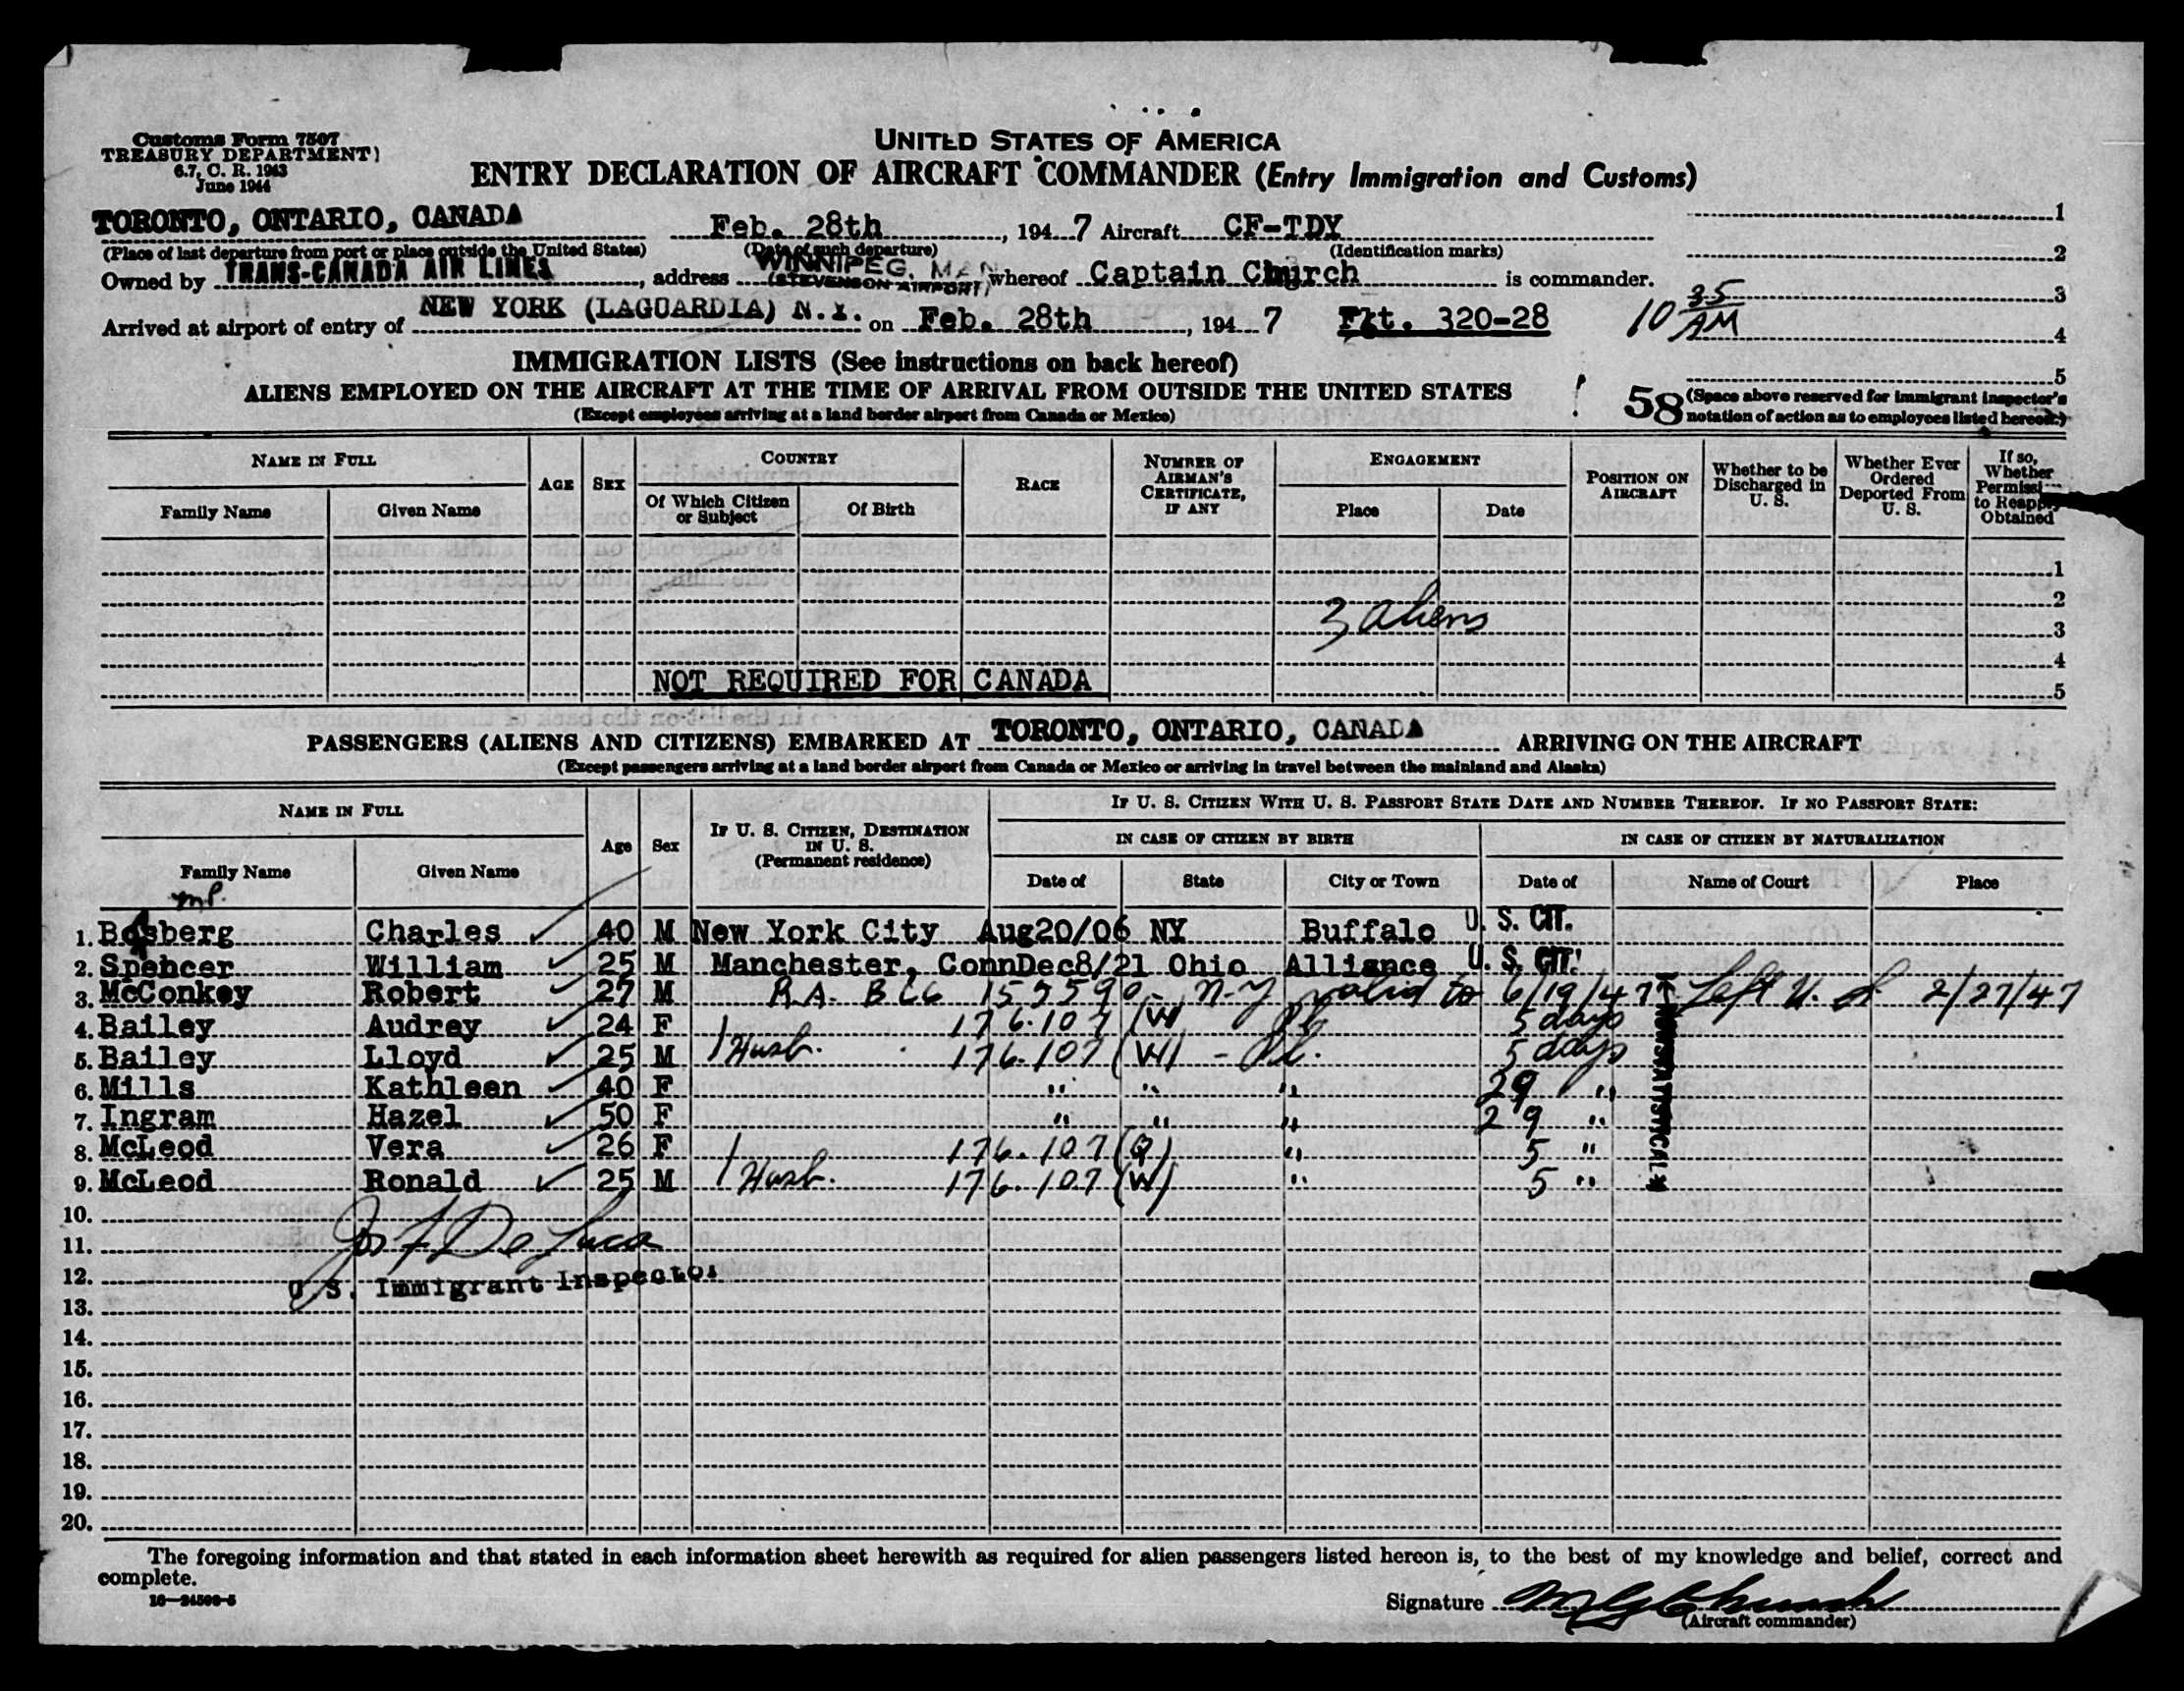 Customs Form 7507
TREASURY DEPARTMENT)
6.7, C. R. 1943
June 1944
UNITED STATES OF AMERICA
ENTRY DECLARATION OF AIRCRAFT COMMANDER (Entry Immigration and Customs)
TORONTO, ONTARIO, CANADA Feb. 28th, 1947 Aircraft CF-TDY 1
(Place of last departure from port or place outside the United States) (Date of such departure) (Identification marks) 2
Owned by TRANS-CANADA AIR LINES, address WINNIPEG, MAN (STEVENSON AIRPORT) whereof Captain Church is commander.
10 35 AM 3
Arrived at airport of entry of NEW YORK (LAGUARDIA) N.Y. on Feb. 28th, 1947 Flt. 320-28 4
IMMIGRATION LISTS (See instructions on back hereof)
5
ALIENS EMPLOYED ON THE AIRCRAFT AT THE TIME OF ARRIVAL FROM OUTSIDE THE UNITED STATES
58 (Space above reserved for immigrant inspector's notation of action as to employees listed hereon.)
(Except employees arriving at a land border airport from Canada or Mexico)
NAME IN FULL AGE SEX COUNTRY RACE NUMBER OF AIRMAN'S CERTIFICATE, IF ANY ENGAGEMENT POSITION ON AIRCRAFT Whether to be Discharged in U. S. Whether Ever Ordered Deported From U. S. If so, Whether Permission to Reapply Obtained
Family Name Given Name Of Which Citizen or Subject Of Birth Place Date
1
2
3 aliens 3
4
NOT REQUIRED FOR CANADA 5
PASSENGERS (ALIENS AND CITIZENS) EMBARKED AT TORONTO, ONTARIO, CANADA ARRIVING ON THE AIRCRAFT
(Except passengers arriving at a land border airport from Canada or Mexico or arriving in travel between the mainland and Alaska)
NAME IN FULL Age Sex IF U. S. CITIZEN, DESTINATION IN U. S. (Permanent residence) IF U. S. CITIZEN WITH U. S. PASSPORT STATE DATE AND NUMBER THEREOF. IF NO PASSPORT STATE:
IN CASE OF CITIZEN BY BIRTH IN CASE OF CITIZEN BY NATURALIZATION
Family Name Given Name Date of State City or Town Date of Name of Court Place
1. Charles 40 M New York City Aug20/06 NY Buffalo U. S. CIT.
2. Spencer William 25 M Manchester, Conn Dec8/21 Ohio Alliance U. S. CIT.
3. McConkey Robert 27 M N-Y valid to 6/19/47 Left U. S. 2/27/47
4. Bailey Audrey 24 F 176.107 (W) 5 days
5. Bailey Lloyd 25 M Husb. 176.107 (W) 5 days
6. Mills Kathleen 40 F " " " 29 "
7. Ingram Hazel 50 F " " " 29 "
8. McLeod Vera 26 F 176.107 " 5 "
9. McLeod Ronald 25 M Husb. 176.107 (W) " 5 "
NONSTATISTICAL
10.
11. Jos F De Luca
12. U.S. Immigrant Inspector
13.
14.
15.
16.
17.
18.
19.
20.
The foregoing information and that stated in each information sheet herewith as required for alien passengers listed hereon is, to the best of my knowledge and belief, correct and
complete.
16—24500-5
Signature M G Church
(Aircraft commander)